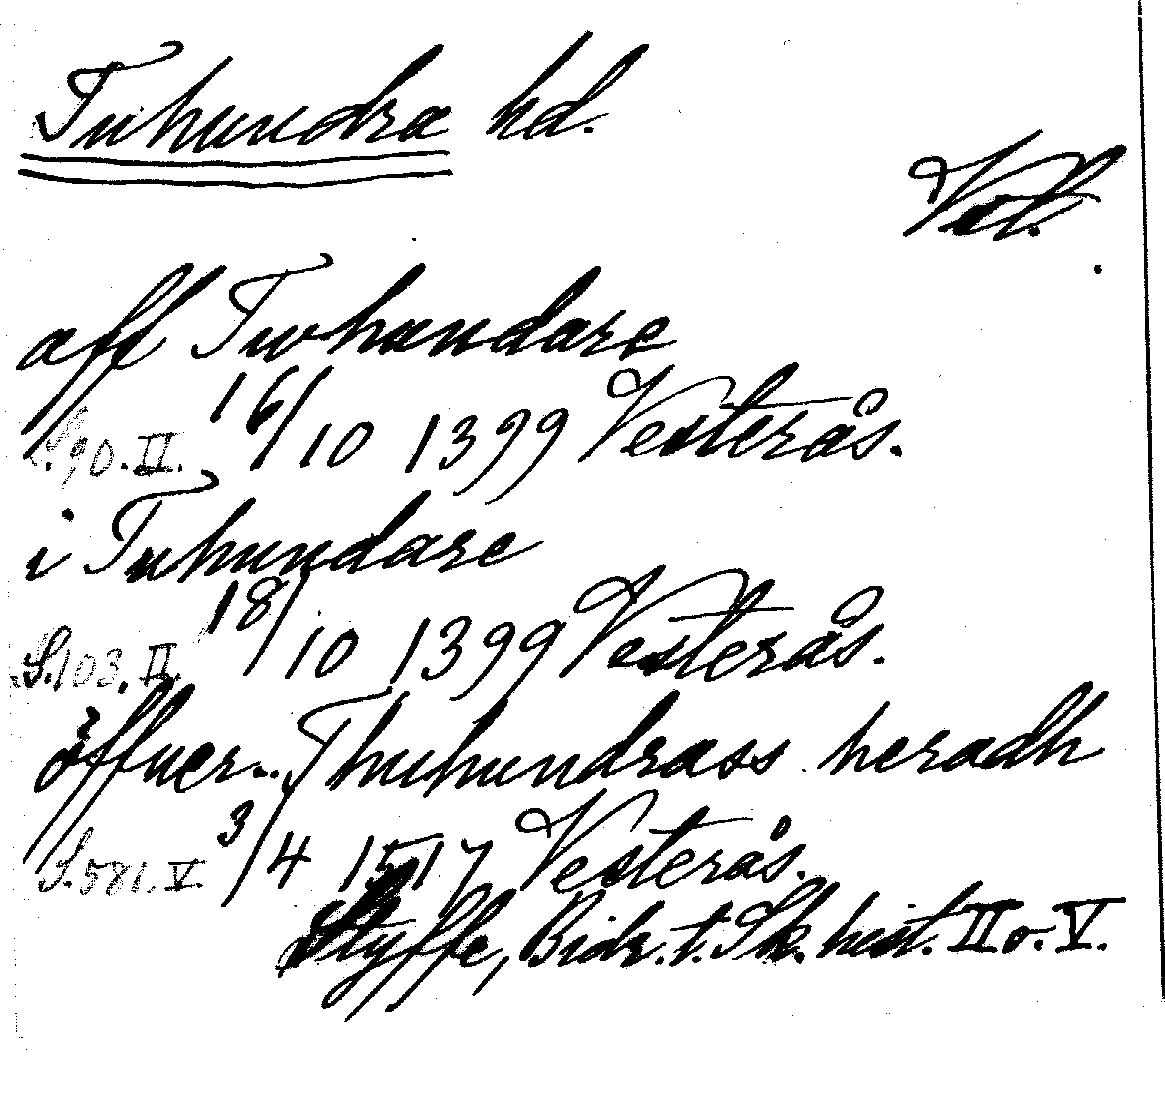 Tuhundra hd.
Vstl.
aff Twhundare
S. 90. II. 16/10 1399 Vesterås.
i Tuhundare
S. 103. II. 18/10 1399 Vesterås.
öffuer.. Thuhundrass heradh
S. 581. V. 3/4 1517 Vesterås.
Styffe, Bidr. t. Sk. hist. II o. V.